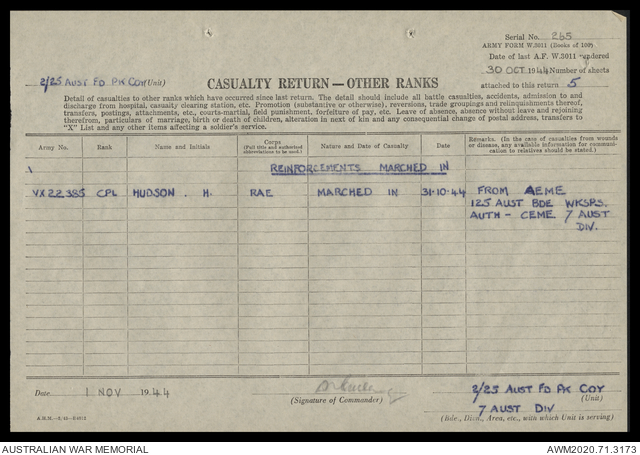 Serial No. 265
ARMY FORM W.3011 (Books of 100)
Date of last A.F. W.3011 rendered
30 OCT 1944 Number of sheets
attached to this return 5
2/25 AUST FD PK COY (Unit)
CASUALTY RETURN—OTHER RANKS
Detail of casualties to other ranks which have occurred since last return. The detail should include all battle casualties, accidents, admission to and
discharge from hospital, casualty clearing station, etc. Promotion (substantive or otherwise), reversions, trade groupings and relinquishments thereof,
transfers, postings, attachments, etc., courts-martial, field punishment, forfeiture of pay, etc. Leave of absence, absence without leave and rejoining
therefrom, particulars of marriage, birth or death of children, alteration in next of kin and any consequential change of postal address, transfers to
"X" List and any other items affecting a soldier's service.
Army No. Rank Name and Initials Corps (Full title and authorized abbreviations to be used.) Nature and Date of Casualty Date Remarks. (In the case of casualties from wounds or disease, any available information for communication to relatives should be stated.)
REINFORCEMENTS MARCHED IN
VX22385 CPL HUDSON . H. RAE MARCHED IN 31-10-44 FROM AEME
125 AUST BDE WKSPS.
AUTH - CEME 7 AUST
DIV.
Date 1 NOV 1944
(Signature of Commander)
2/25 AUST FD PK COY
(Unit)
7 AUST DIV
(Bde., Divn., Area, etc., with which Unit is serving)
AUSTRALIAN WAR MEMORIAL
AWM2020.71.3173